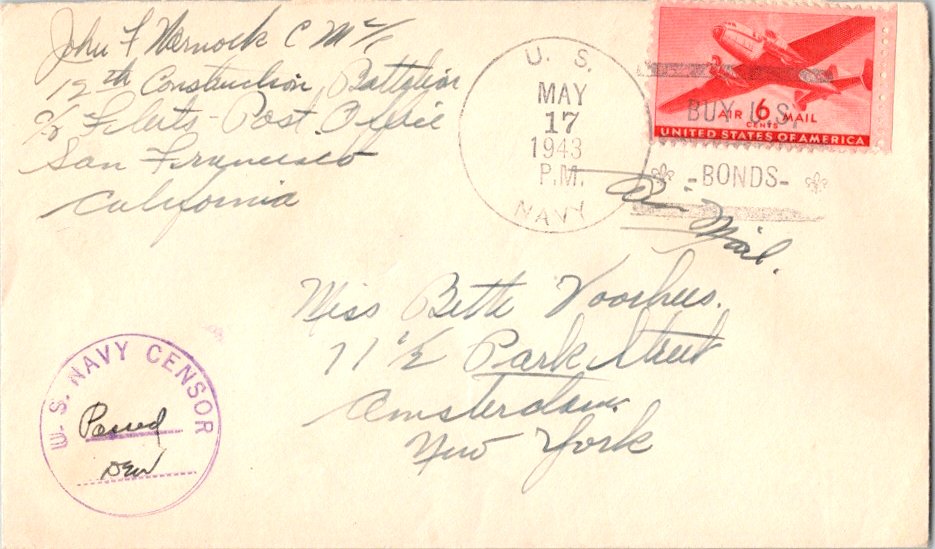 John F Wernock C M 2/c
12th Construction Battalion
c/o Fleets-Post Office
San Francisco
California
U. S.
MAY
17
1943
P.M.
NAVY
BUY U.S.
-BONDS-
AIR 6 MAIL
CENTS
UNITED STATES OF AMERICA
Air Mail.
Miss Bette Voorhees.
11 1/2 Park Street
Amsterdam.
New York
U. S. NAVY CENSOR
Passed